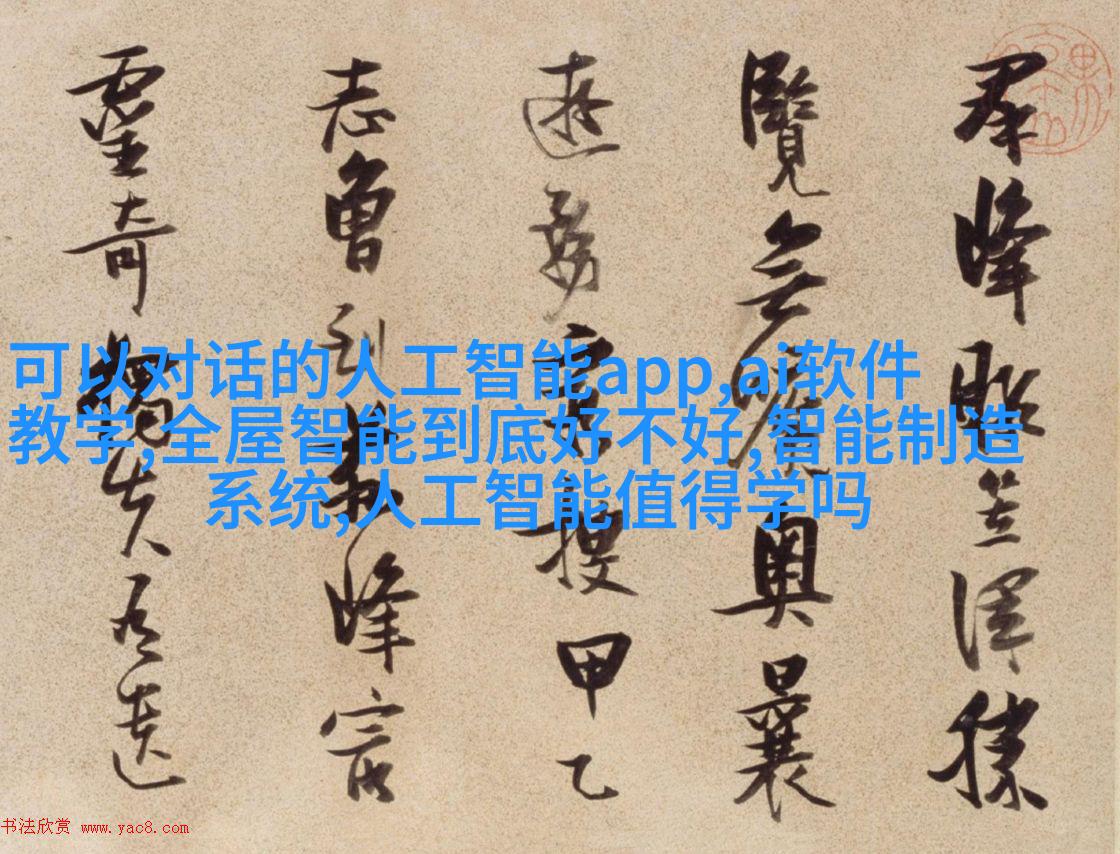 可以对话的人工智能app,ai软件
教学,全屋智能到底好不好,智能制造
系统,人工智能值得学吗
羣峰澤勝
覽無奧曩
遊務窮搜甲乙
志魯峰
靈奇獨失
书法欣赏 www.yac8.com